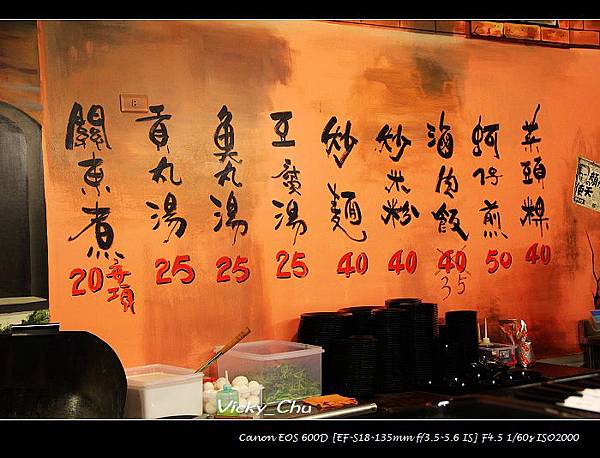 菜頭粿 40
蚵仔煎 50
滷肉飯 40 35
炒米粉 40
炒麵 40
豆腐湯 25
魚丸湯 25
貢丸湯 25
關東煮 20 每項
Vicky_Chu
Canon EOS 600D [EF-S18-135mm f/3.5-5.6 IS] F4.5 1/60s ISO2000